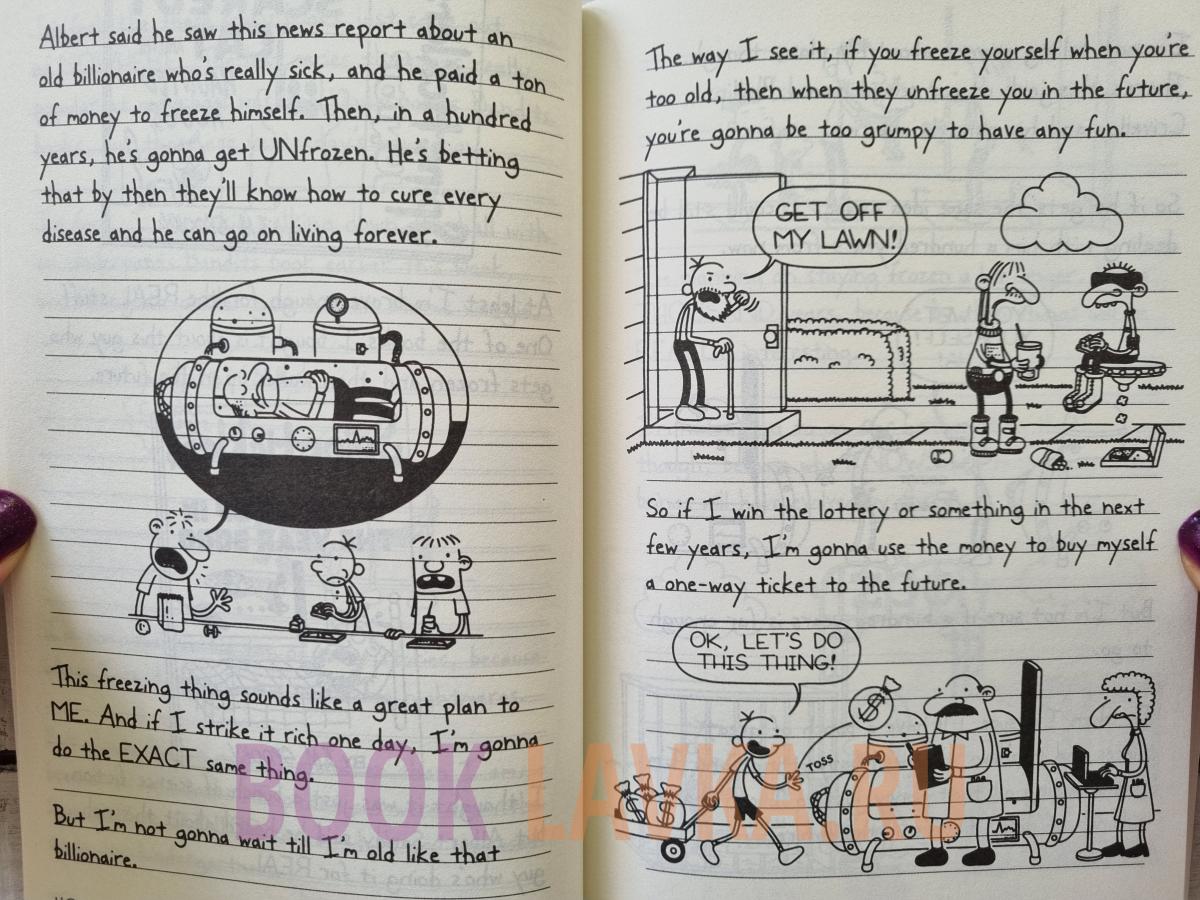 Albert said he saw this news report about an
old billionaire who's really sick, and he paid a ton
of money to freeze himself. Then, in a hundred
years, he's gonna get UNfrozen. He's betting
that by then they'll know how to cure every
disease and he can go on living forever.
This freezing thing sounds like a great plan to
ME. And if I strike it rich one day, I'm gonna
do the EXACT same thing.
But I'm not gonna wait till I'm old like that
billionaire.
The way I see it, if you freeze yourself when you're
too old, then when they unfreeze you in the future,
you're gonna be too grumpy to have any fun.
GET OFF
MY LAWN!
So if I win the lottery or something in the next
few years, I'm gonna use the money to buy myself
a one-way ticket to the future.
OK, LET'S DO
THIS THING!
$
TOSS
BOOK LAVKA.RU